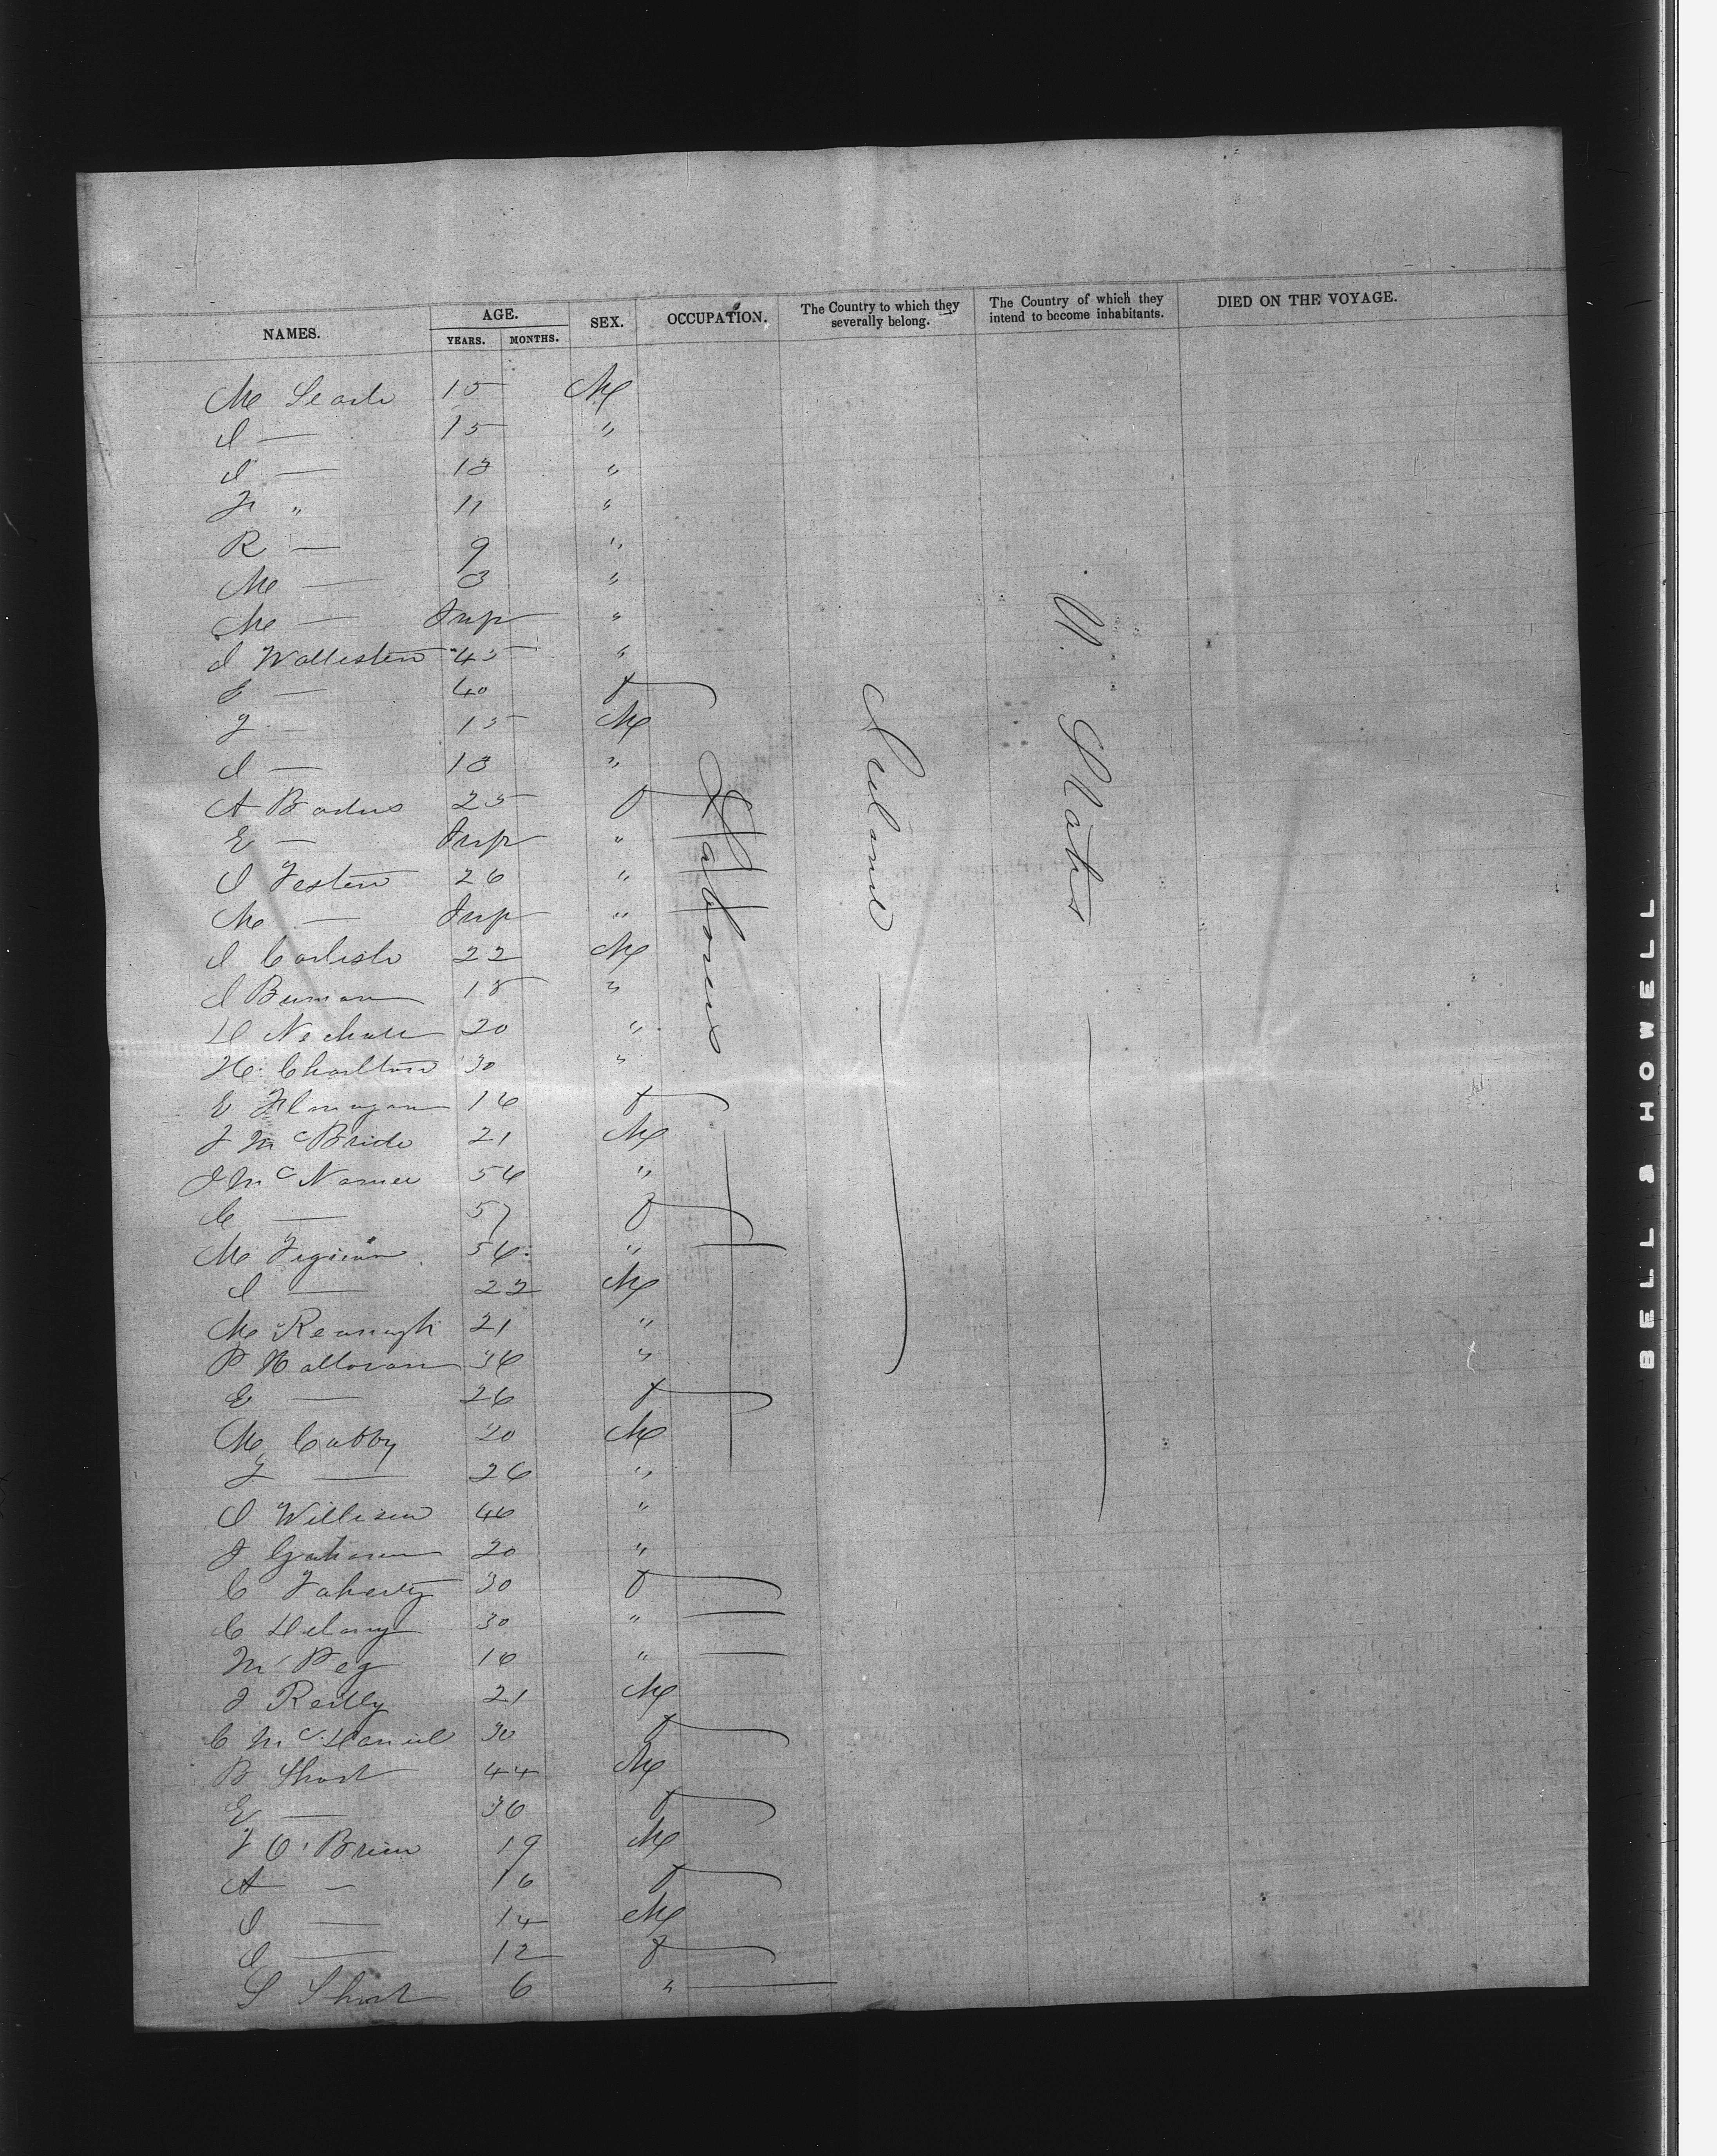 NAMES. AGE. YEARS. MONTHS. SEX. OCCUPATION. The Country to which they severally belong. The Country of which they intend to become inhabitants. DIED ON THE VOYAGE.
M 15 M
J — 15 "
J — 13 "
" 11 "
R — 9 "
M — 3 "
M — Inf "
J 45 "
E — 40 f
J — 15 M
J — 13 "
A 25 f
E — Inf "
J 26 "
M — Inf "
J Carlisle 22 M
J 18 "
D 20 "
H Charlton 30 "
E Flanagan 16 f
J McBride 21 M
J McNamee 56 "
C — 57 f
M 56 "
J — 22 M
M 21 "
P Halloran 36 "
E — 26 f
M Cabby 20 M
J — 26 "
J 46 "
J Graham 20 "
C Faherty 30 f
C Delany 30 "
M Peg 16 "
J Reilly 21 M
C McDaniel 30 f
B Short 44 M
E — 36 f
J O'Brien 19 M
A — 16 f
J — 14 M
J — 12 f
S Short 6 "
Laborers
Ireland
U. States
BELL & HOWELL